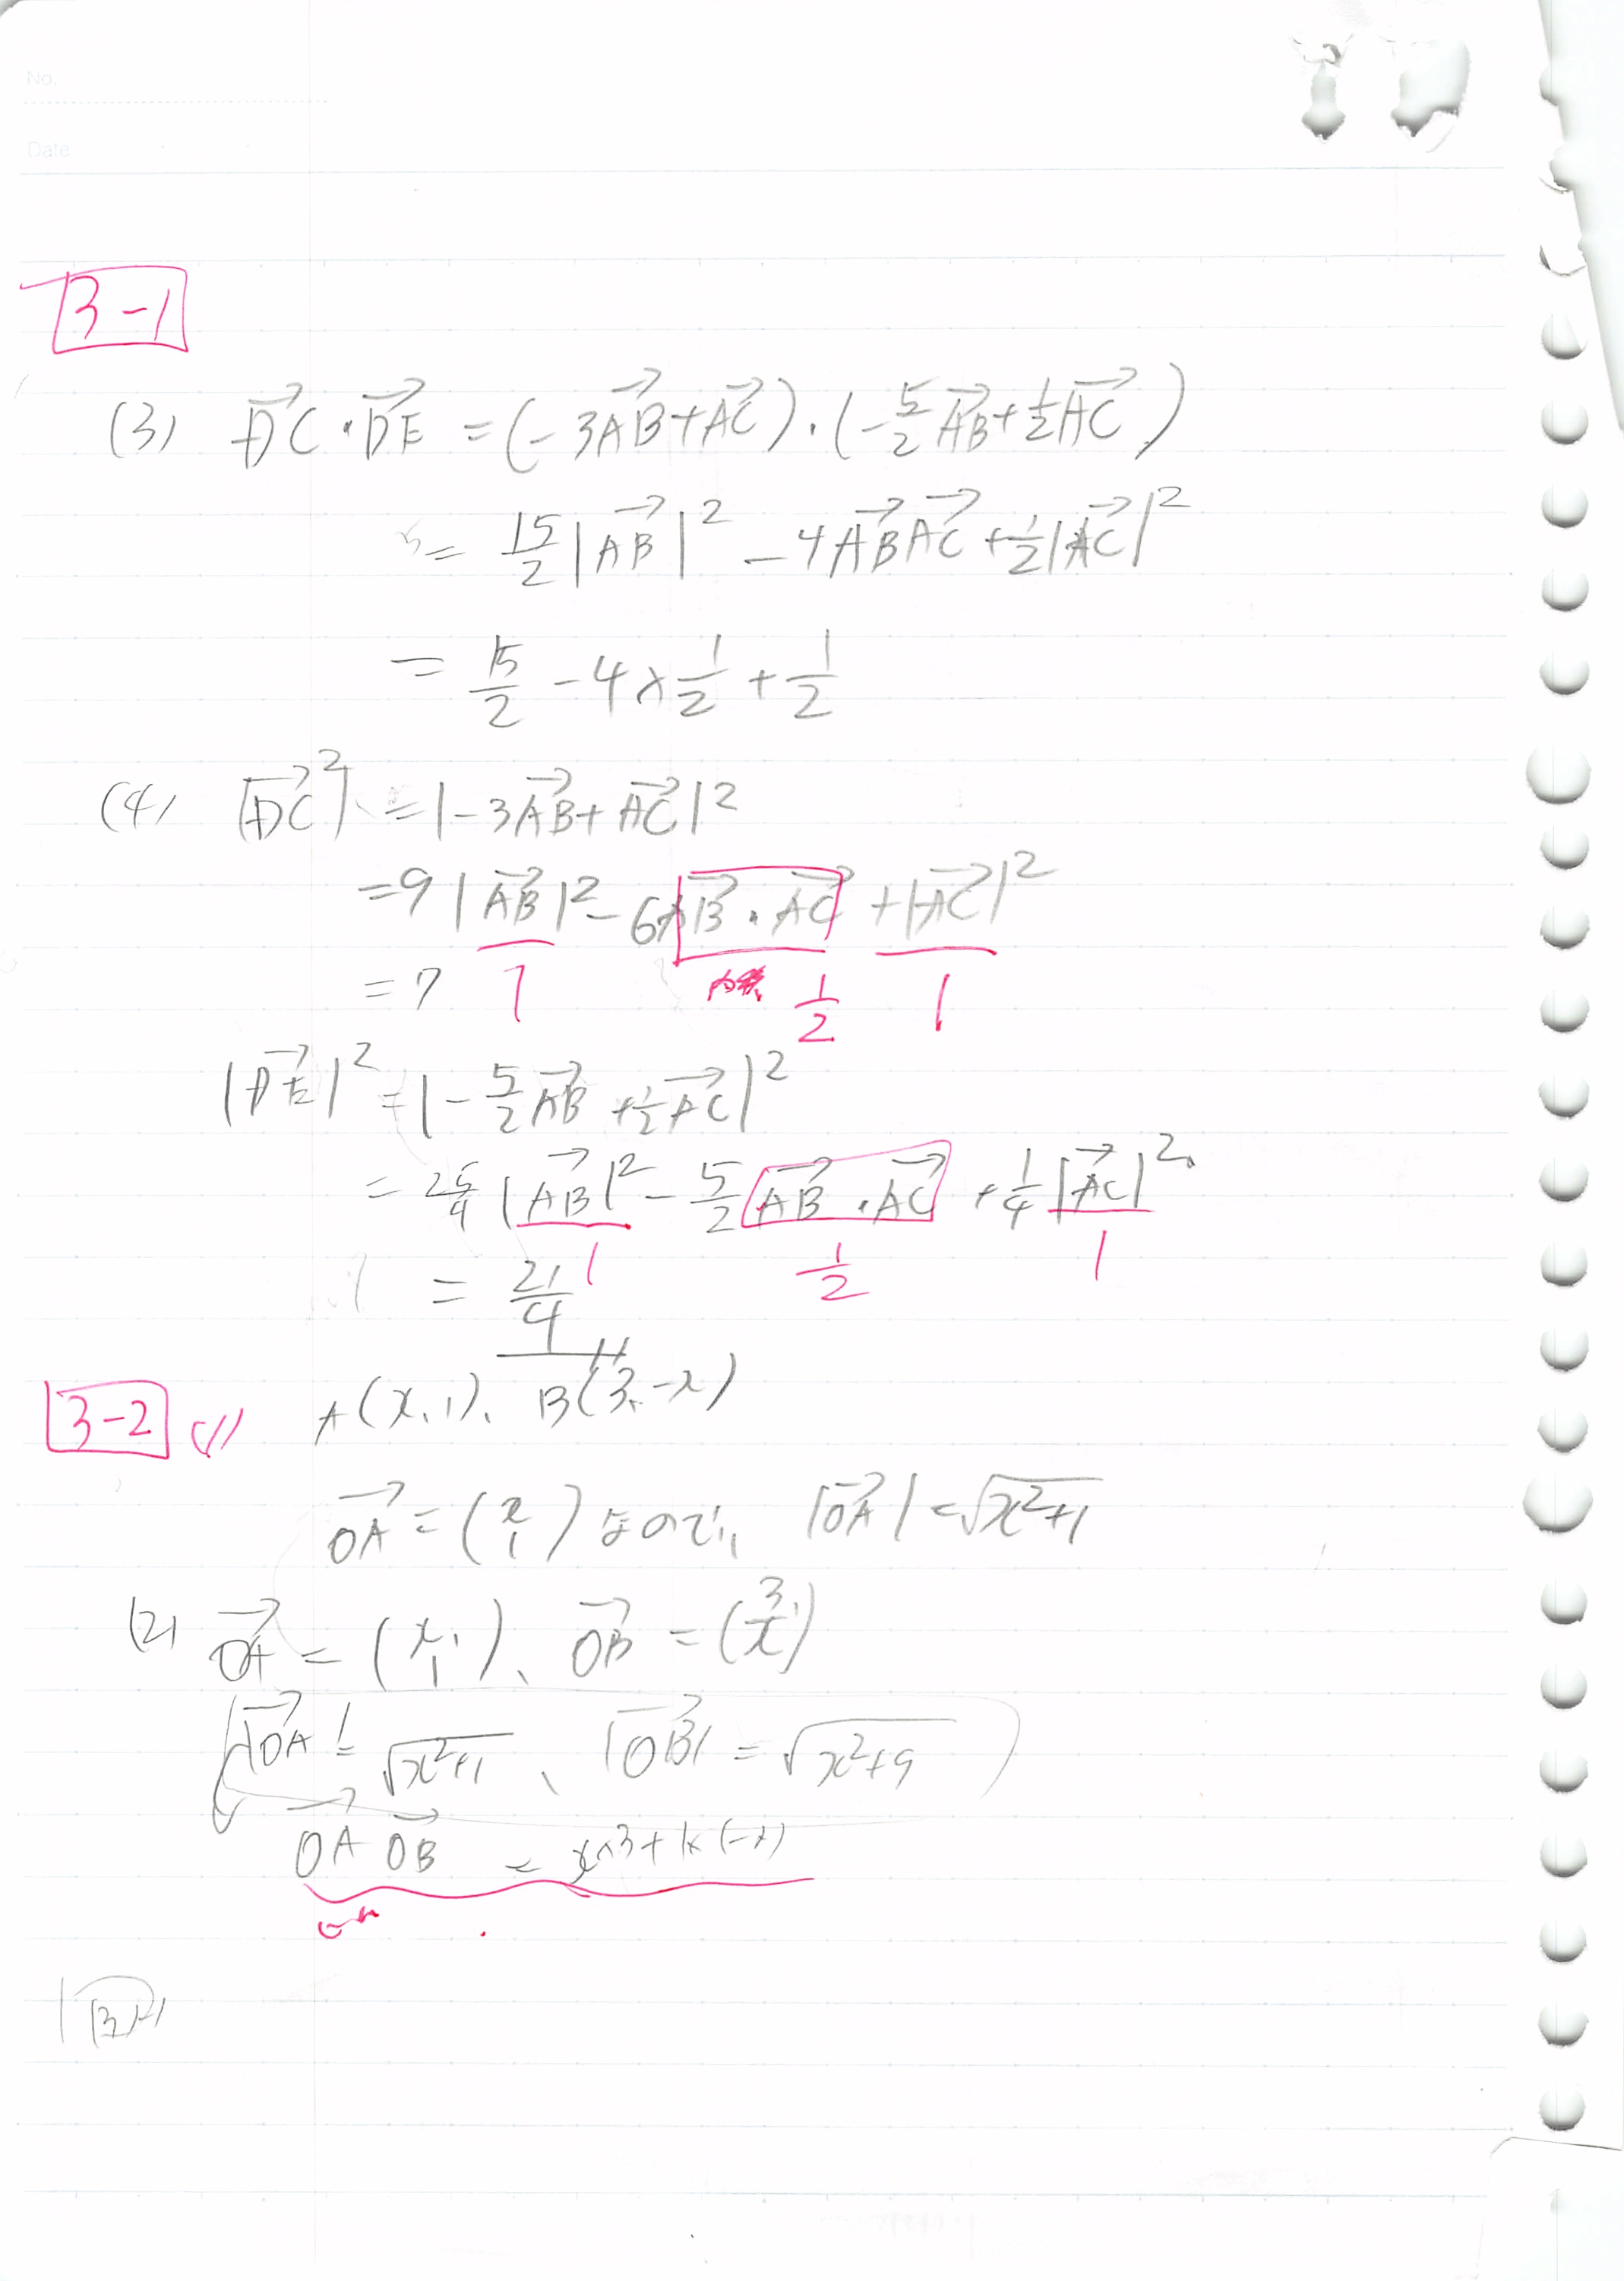 No.
Date
3-1
(3) →DC・→DE = (-3→AB+→AC)・(-5/2→AB+1/2→AC)
= 15/2|→AB|² - 4→AB→AC + 1/2|→AC|²
= 15/2 - 4×1/2 + 1/2
(4) |→DC|² = |-3→AB+→AC|²
= 9|→AB|² - 6→AB・→AC + |→AC|²
= 7 1 内積 1/2 1
|→DE|² = |-5/2→AB+1/2→AC|²
= 25/4|→AB|² - 5/2→AB・→AC + 1/4|→AC|²
1 1/2 1
= 21/4
3-2 (1) A(x,1)、B(3,-x)
→OA = (x 1) なので、 |→OA| = √x²+1
(2) →OA = (x 1)、→OB = (3 -x)
|→OA| = √x²+1、|→OB| = √x²+9
→OA →OB = x×3+1×(-x)
(3)